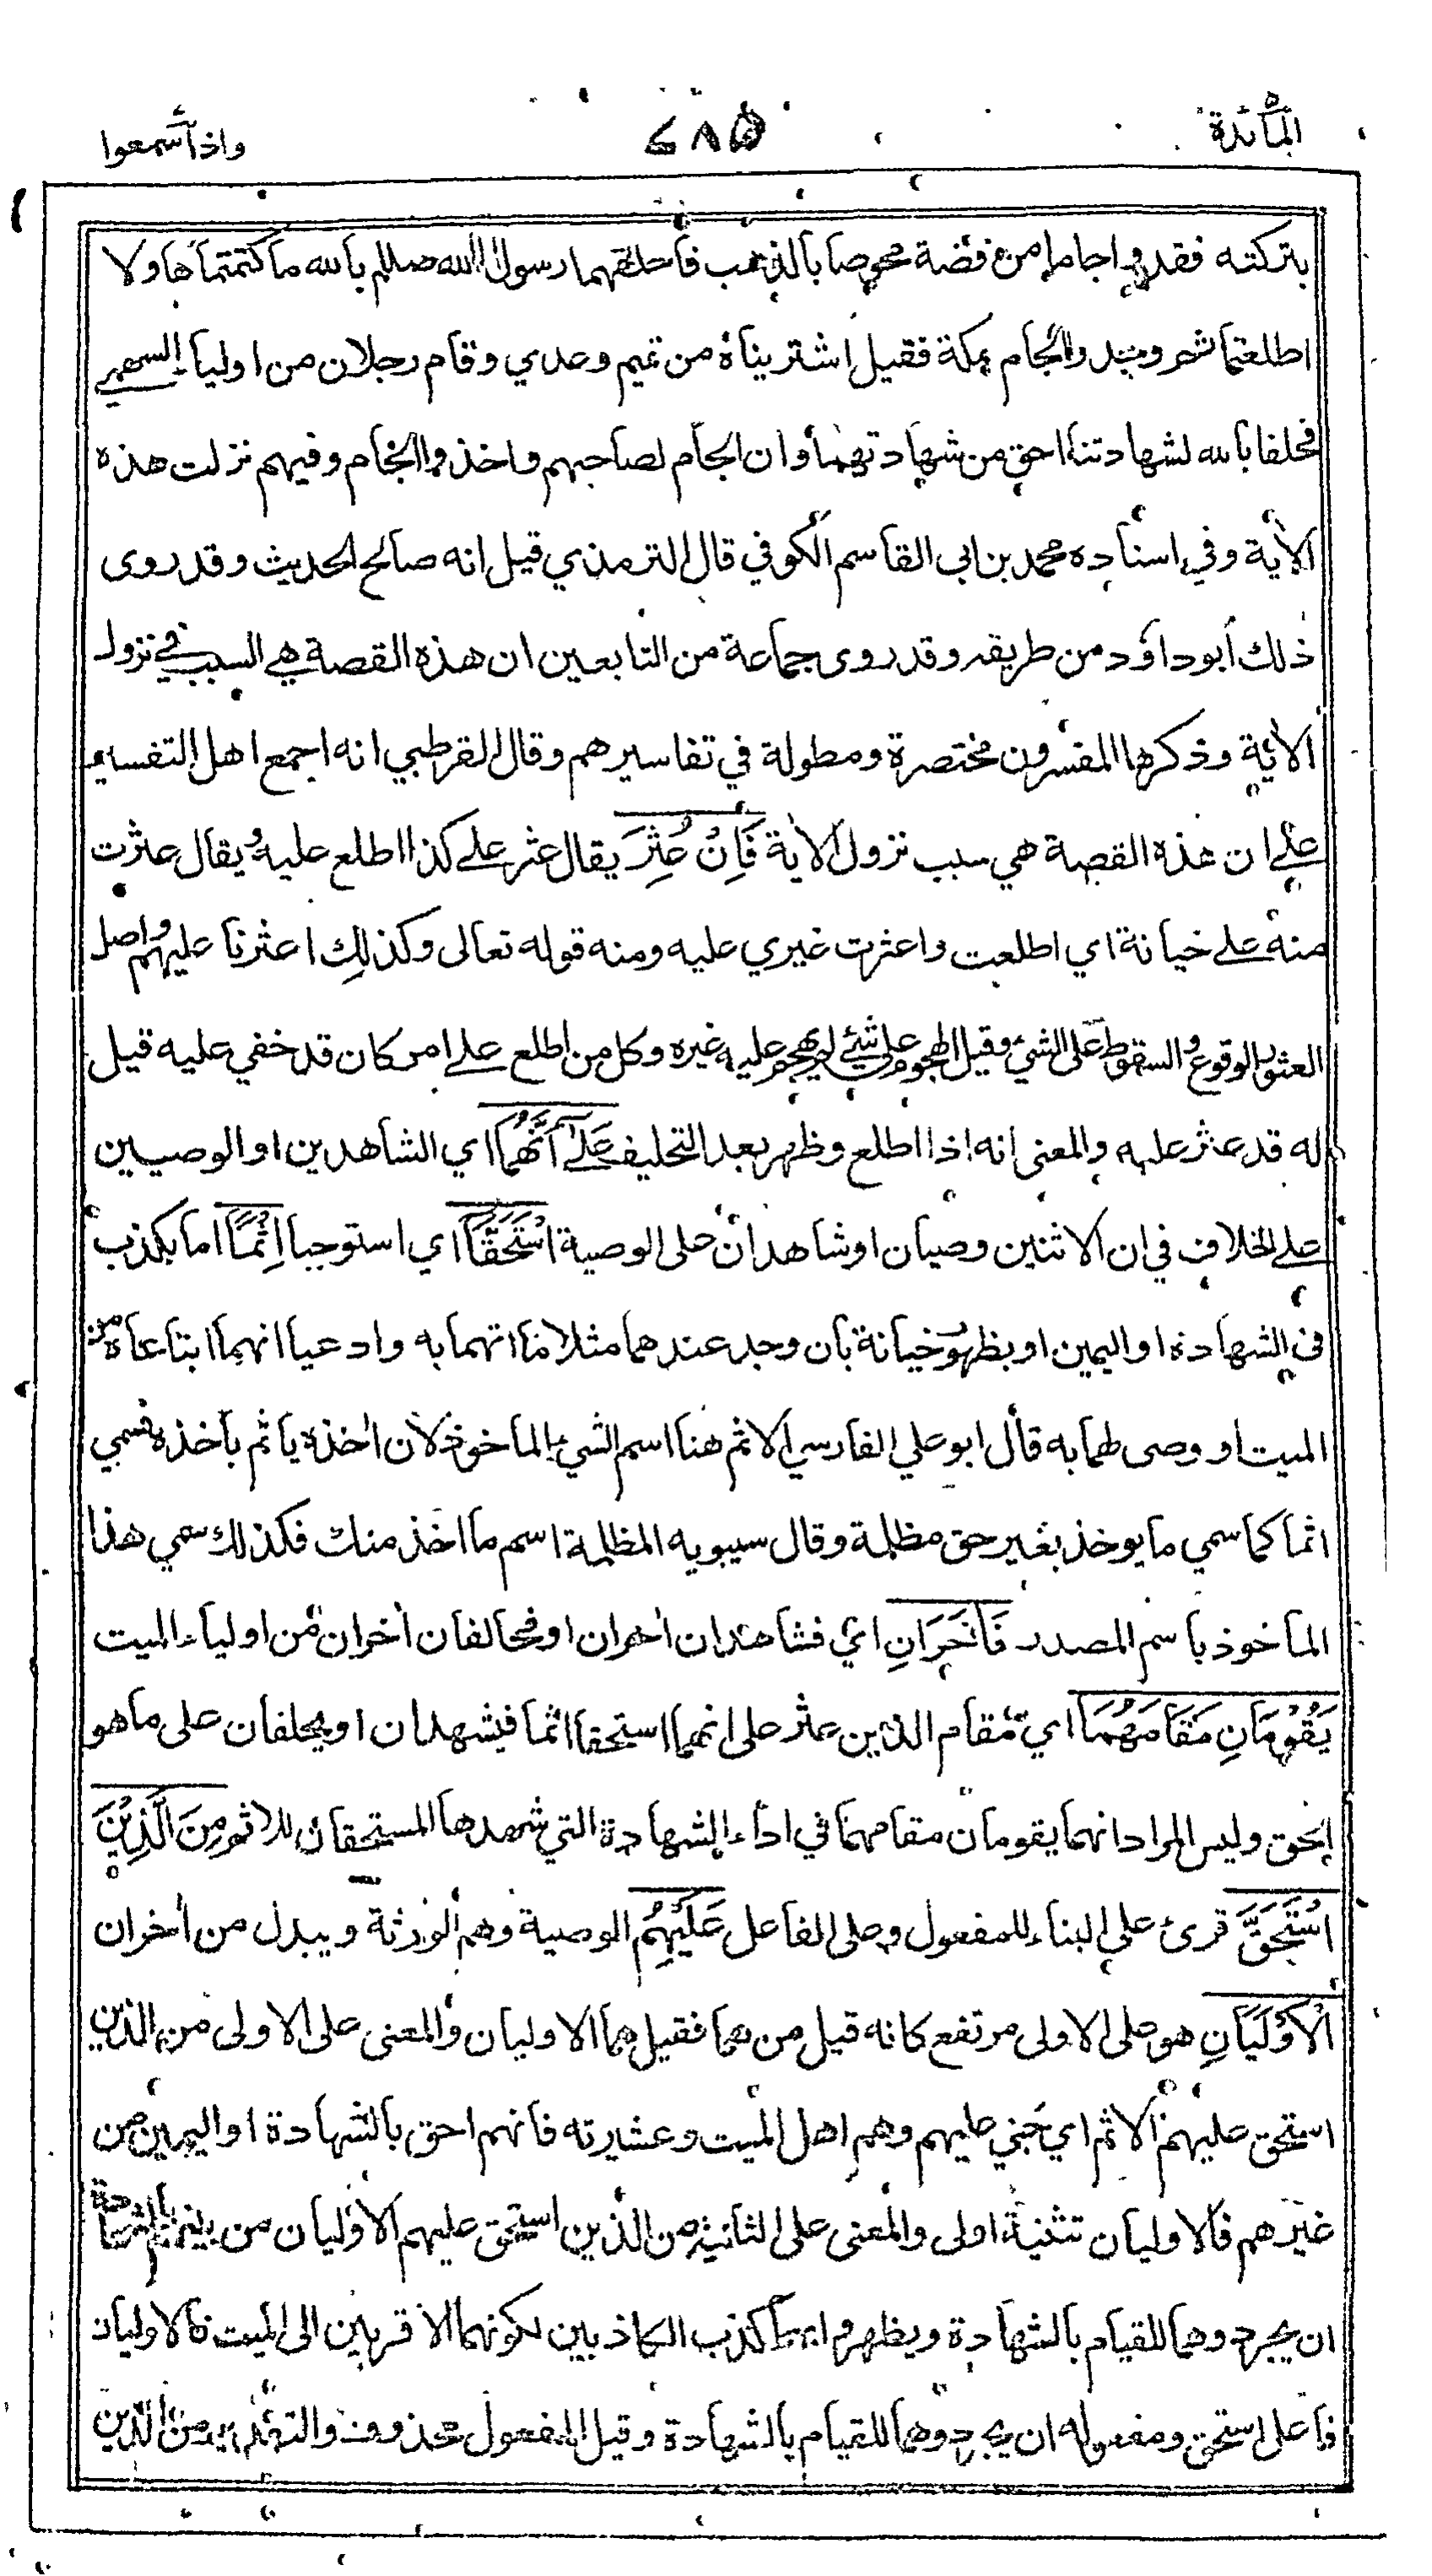 المائدة ٦٨٥ واذا سمعوا
بتركته فقدوا جاما من فضة مخوصا بالذهب فاحلفهما رسول الله صللم بالله ما كتمتماها ولا
اطلعتما ثم وجدوا الجام بمكة فقيل اشتريناه من تميم وعدي وقام رجلان من اولياء السهمي
فحلفا بالله لشهادتنا احق من شهادتهما وان الجام لصاحبهم واخذوا الجام وفيهم نزلت هذه
الأية وفي اسناده محمد بن ابى القاسم الكوفي قال الترمذي قيل انه صالح الحديث وقد روى
ذلك أبو داؤد من طريقه وقد روى جماعة من التابعين ان هذه القصة هي السبب في نزول
الأية وذكرها المفسرون مختصرة ومطولة في تفاسيرهم وقال القرطبي انه اجمع اهل التفسير
على ان هذه القصة هي سبب نزول الأية فَاِنْ عُثِرَ يقال عثر على كذا اطلع عليه ويقال عثرت
منه على خيانة اي اطلعت واعثرت غيري عليه ومنه قوله تعالى وكذلك اعثرنا عليهم واصل
العثور الوقوع والسقوط على الشيء وقيل الهجوم على شئ لم يهجم عليه غيره وكل من اطلع على امر كان قد خفي عليه قيل
له قد عثر عليه والمعنى انه اذا اطلع وظهر بعد التحليف عَلٰى اَنَّهُمَا اي الشاهدين او الوصيين
على الخلاف في ان الاثنين وصيان او شاهدان على الوصية اسْتَحَقَّا اي استوجبا اِثْمًا اما بكذب
في الشهادة او اليمين او بظهور خيانة بان وجد عندهما مثلا ما اتهما به وادعيا انهما ابتاعاه من
الميت او وصى لهما به قال ابو علي الفارسي الاثم هنا اسم الشيء الماخوذ لان اخذه ياثم باخذه فسمي
اثما كما سمي ما يوخذ بغير حق مظلمة وقال سيبويه المظلمة اسم ما اخذ منك فكذلك سمي هذا
الماخوذ باسم المصدر فَاٰخَرَانِ اي فشاهدان اخران او فحالفان أخران من اولياء الميت
يَقُوْمَانِ مَقَامَهُمَا اي مقام الذين عثر على انهما استحقا اثما فيشهدان او يحلفان على ما هو
الحق وليس المراد انهما يقومان مقامهما في اداء الشهادة التي شهدها المستحقان للاثم مِنَ الَّذِيْنَ
اسْتَحَقَّ قرئ على البناء للمفعول وعلى الفاعل عَلَيْهِمُ الوصية وهم الورثة ويبدل من أخران
الْاَوْلَيَانِ هو على الاولى مرتفع كانه قيل من هما فقيل هما الاوليان والمعنى على الاولى من الذين
استحق عليهم الاثم اي جني عليهم وهم اهل الميت وعشيرته فانهم احق بالشهادة او اليمين من
غيرهم فالاوليان تثنية اولى والمعنى على الثانية من الذين استحق عليهم الاوليان من بينهم بالشهادة
ان يجردوهما للقيام بالشهادة ويظهروا بهما كذب الكاذبين لكونهما الاقربين الى الميت فالاوليان
فاعل استحق ومفعوله ان يجردوهما للقيام بالشهادة وقيل المفعول محذوف والتقدير من الذين